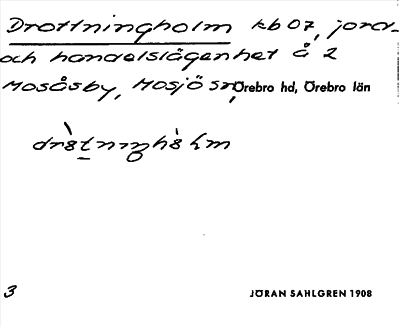 Drottningholm kb 07, jord-
och handelslägenhet å 2
Mosåsby, Mosjö sn, Örebro hd, Örebro län
3
JÖRAN SAHLGREN 1908